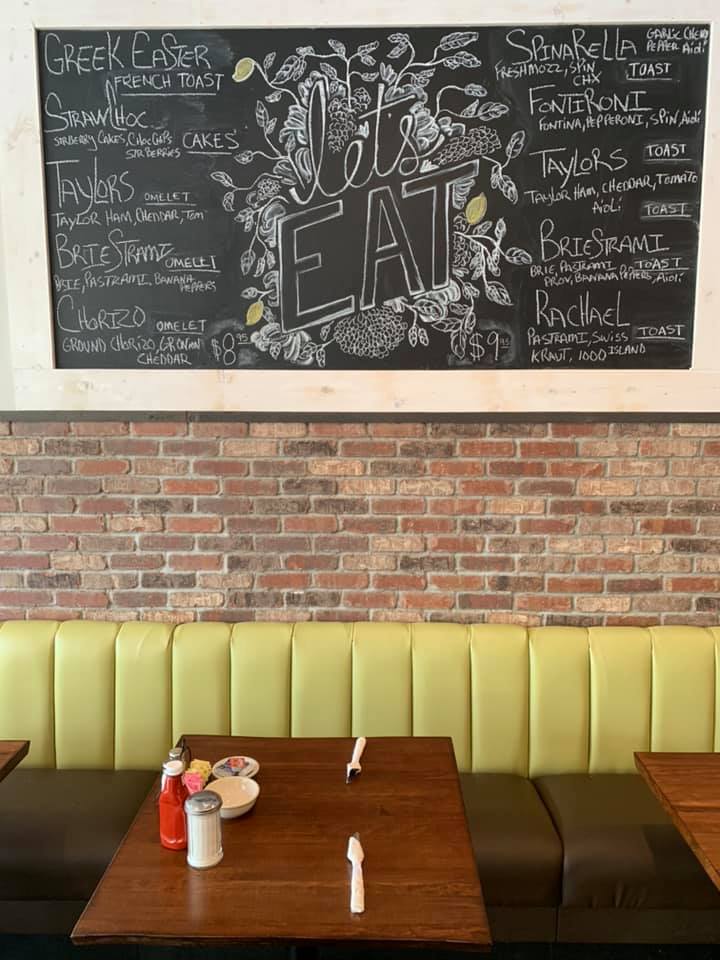 GREEK EASTER
FRENCH TOAST
STRAWChOC
CAKES
STRBERRIES
TAYLORS OMELET
TAYLOR HAM, CHEDDAR, TOM
BRIESTRAMI OMELET
BRIE, PASTRAMI, BANANA
PEPPERS
CHORIZO OMELET
GROUND CHORIZO, ONION
CHEDDAR
$8.95
let's
EAT
SPINARELLA
GARLIC CHERRY
PEPPER Aioli
FRESH MOZZ, SPIN,
CHX
TOAST
FONTIRONI
FONTINA, PEPPERONI, SPIN, Aioli
TOAST
TAYLORS
TAYLOR HAM, CHEDDAR, TOMATO
Aioli
TOAST
BRIESTRAMI
BRIE, PASTRAMI TOAST
PROV, BANANA PEPPERS, Aioli
RACHAEL
PASTRAMI, SWISS TOAST
KRAUT, 1000 ISLAND
$9.95